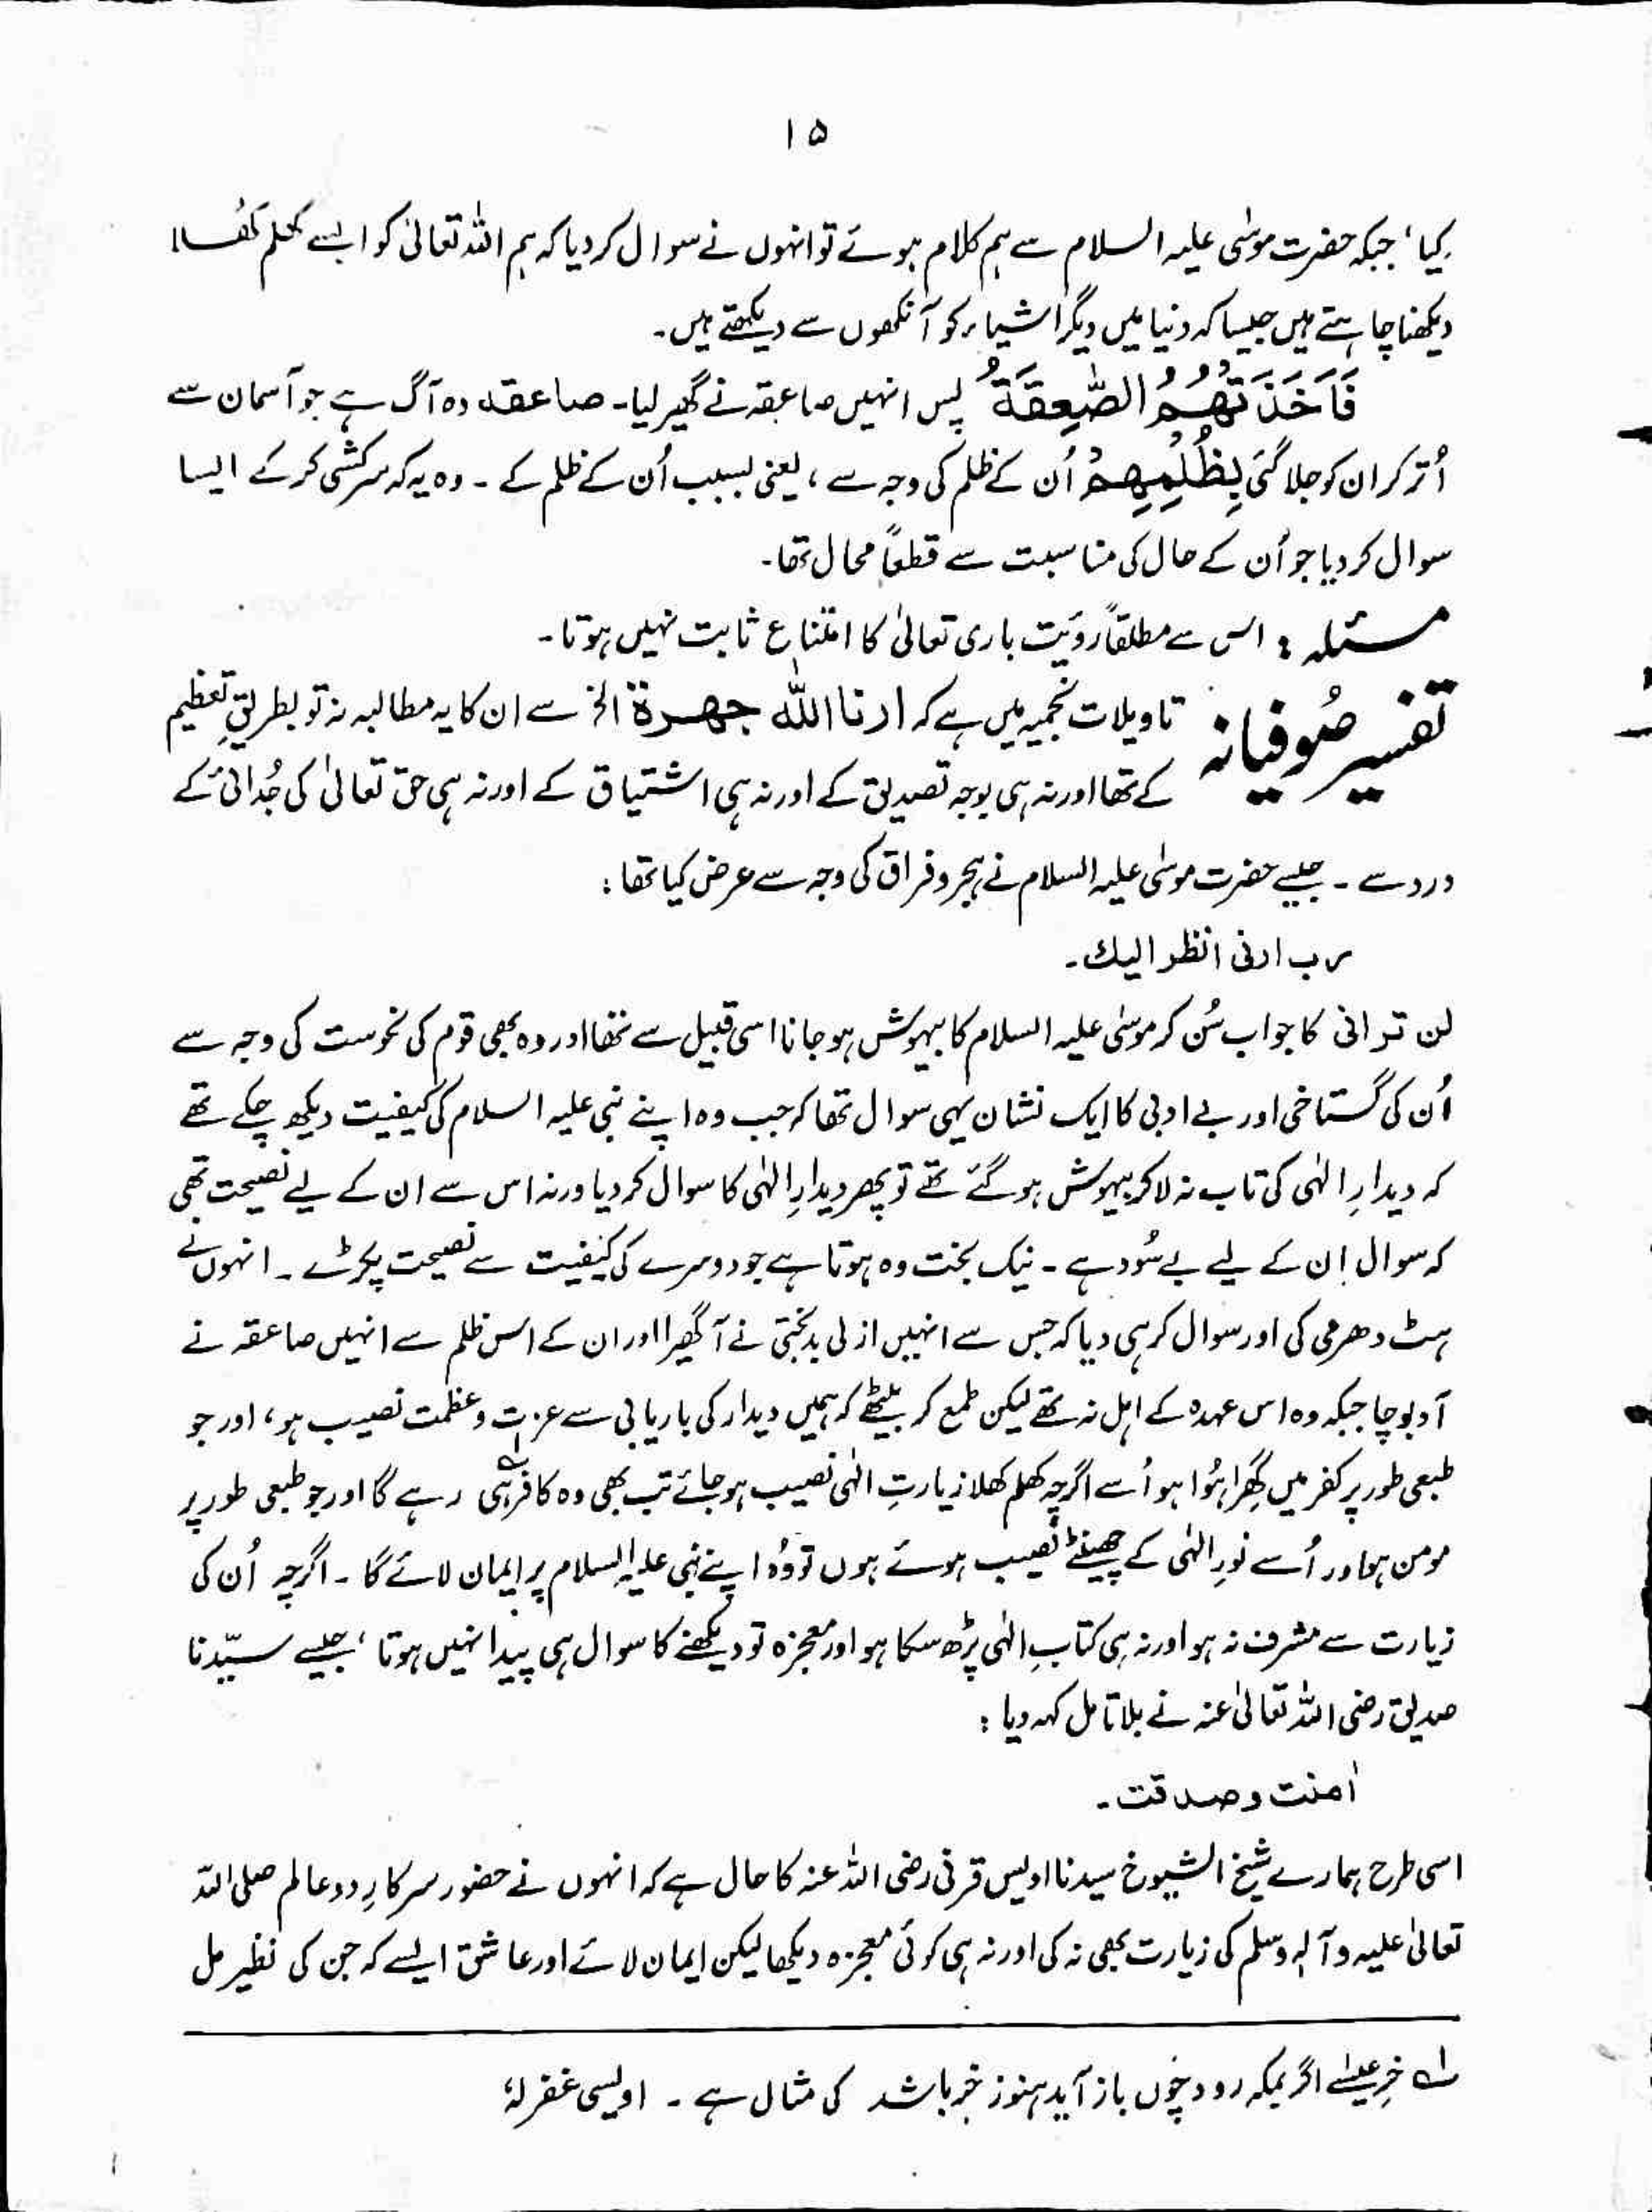 ۱۵
کیا، جبکہ حضرت موسٰی علیہ السلام سے ہم کلام ہوئے تو انہوں نے سوال کر دیا کہ ہم اللہ تعالیٰ کو ایسے کھلم کھلا
دیکھنا چاہتے ہیں جیسا کہ دنیا میں دیگر اشیاء کو آنکھوں سے دیکھتے ہیں۔
فَاَخَذَتْهُمُ الصّٰعِقَةُ پس انہیں صاعقہ نے گھیر لیا۔ صاعقہ وہ آگ ہے جو آسمان سے
اُتر کر ان کو جلا گئی بِظُلْمِهِمْ اُن کے ظلم کی وجہ سے، یعنی بسبب اُن کے ظلم کے۔ وہ یہ کہ سرکشی کر کے ایسا
سوال کر دیا جو اُن کے حال کی مناسبت سے قطعاً محال تھا۔
مسئلہ : اس سے مطلقاً رؤیت باری تعالیٰ کا امتناع ثابت نہیں ہوتا۔
تفسیر صُوفیانہ تاویلات نجمیہ میں ہے کہ ارنا اللّٰہ جھرۃ الخ سے ان کا یہ مطالبہ نہ تو بطریقِ تعظیم
کے تھا اور نہ ہی بوجہ تصدیق کے اور نہ ہی اشتیاق کے اور نہ ہی حق تعالیٰ کی جُدائی کے
درد سے۔ جیسے حضرت موسٰی علیہ السلام نے ہجر و فراق کی وجہ سے عرض کیا تھا :
رب ارنی انظر الیک۔
لن ترانی کا جواب سُن کر موسٰی علیہ السلام کا بیہوش ہو جانا اسی قبیل سے تھا اور وہ بھی قوم کی نحوست کی وجہ سے
اُن کی گستاخی اور بے ادبی کا ایک نشان یہی سوال تھا کہ جب وہ اپنے نبی علیہ السلام کی کیفیت دیکھ چکے تھے
کہ دیدارِ الٰہی کی تاب نہ لا کر بیہوش ہو گئے تھے تو پھر دیدارِ الٰہی کا سوال کر دیا ورنہ اس سے ان کے لیے نصیحت تھی
کہ سوال اِن کے لیے بے سُود ہے۔ نیک بخت وہ ہوتا ہے جو دوسرے کی کیفیت سے نصیحت پکڑے۔ انہوں نے
ہٹ دھرمی کی اور سوال کر ہی دیا کہ جس سے انہیں ازلی بدبختی نے آ گھیرا اور ان کے اس ظلم سے انہیں صاعقہ نے
آ دبوچا جبکہ وہ اس عہدہ کے اہل نہ تھے لیکن طمع کر بیٹھے کہ ہمیں دیدار کی باریابی سے عزت و عظمت نصیب ہو، اور جو
طبعی طور پر کفر میں گھِرا ہُوا ہو اُسے اگرچہ کھلم کھلا زیارتِ الٰہی نصیب ہو جائے تب بھی وہ کافر ہی لے رہے گا اور جو طبعی طور پر
مومن ہو اور اُسے نورِ الٰہی کے چھینٹے نصیب ہوئے ہوں تو وُہ اپنے نبی علیہ السلام پر ایمان لائے گا۔ اگرچہ اُن کی
زیارت سے مشرف نہ ہو اور نہ ہی کتابِ الٰہی پڑھ سکا ہو اور معجزہ تو دیکھنے کا سوال ہی پیدا نہیں ہوتا، جیسے سیّدنا
صدیق رضی اللہ تعالیٰ عنہ نے بلا تامل کہہ دیا :
اٰمنت و صدقت۔
اسی طرح ہمارے شیخ الشیوخ سیدنا اویس قرنی رضی اللہ عنہ کا حال ہے کہ انہوں نے حضور سرکارِ دو عالم صلی اللہ
تعالیٰ علیہ و آلہٖ وسلم کی زیارت بھی نہ کی اور نہ ہی کوئی معجزہ دیکھا لیکن ایمان لائے اور عاشق ایسے کہ جن کی نظیر مل
لے خرِ عیسٰے اگر بمکہ رود چوں باز آید ہنوز خر باشد کی مثال ہے۔ اویسی غفرلہٗ